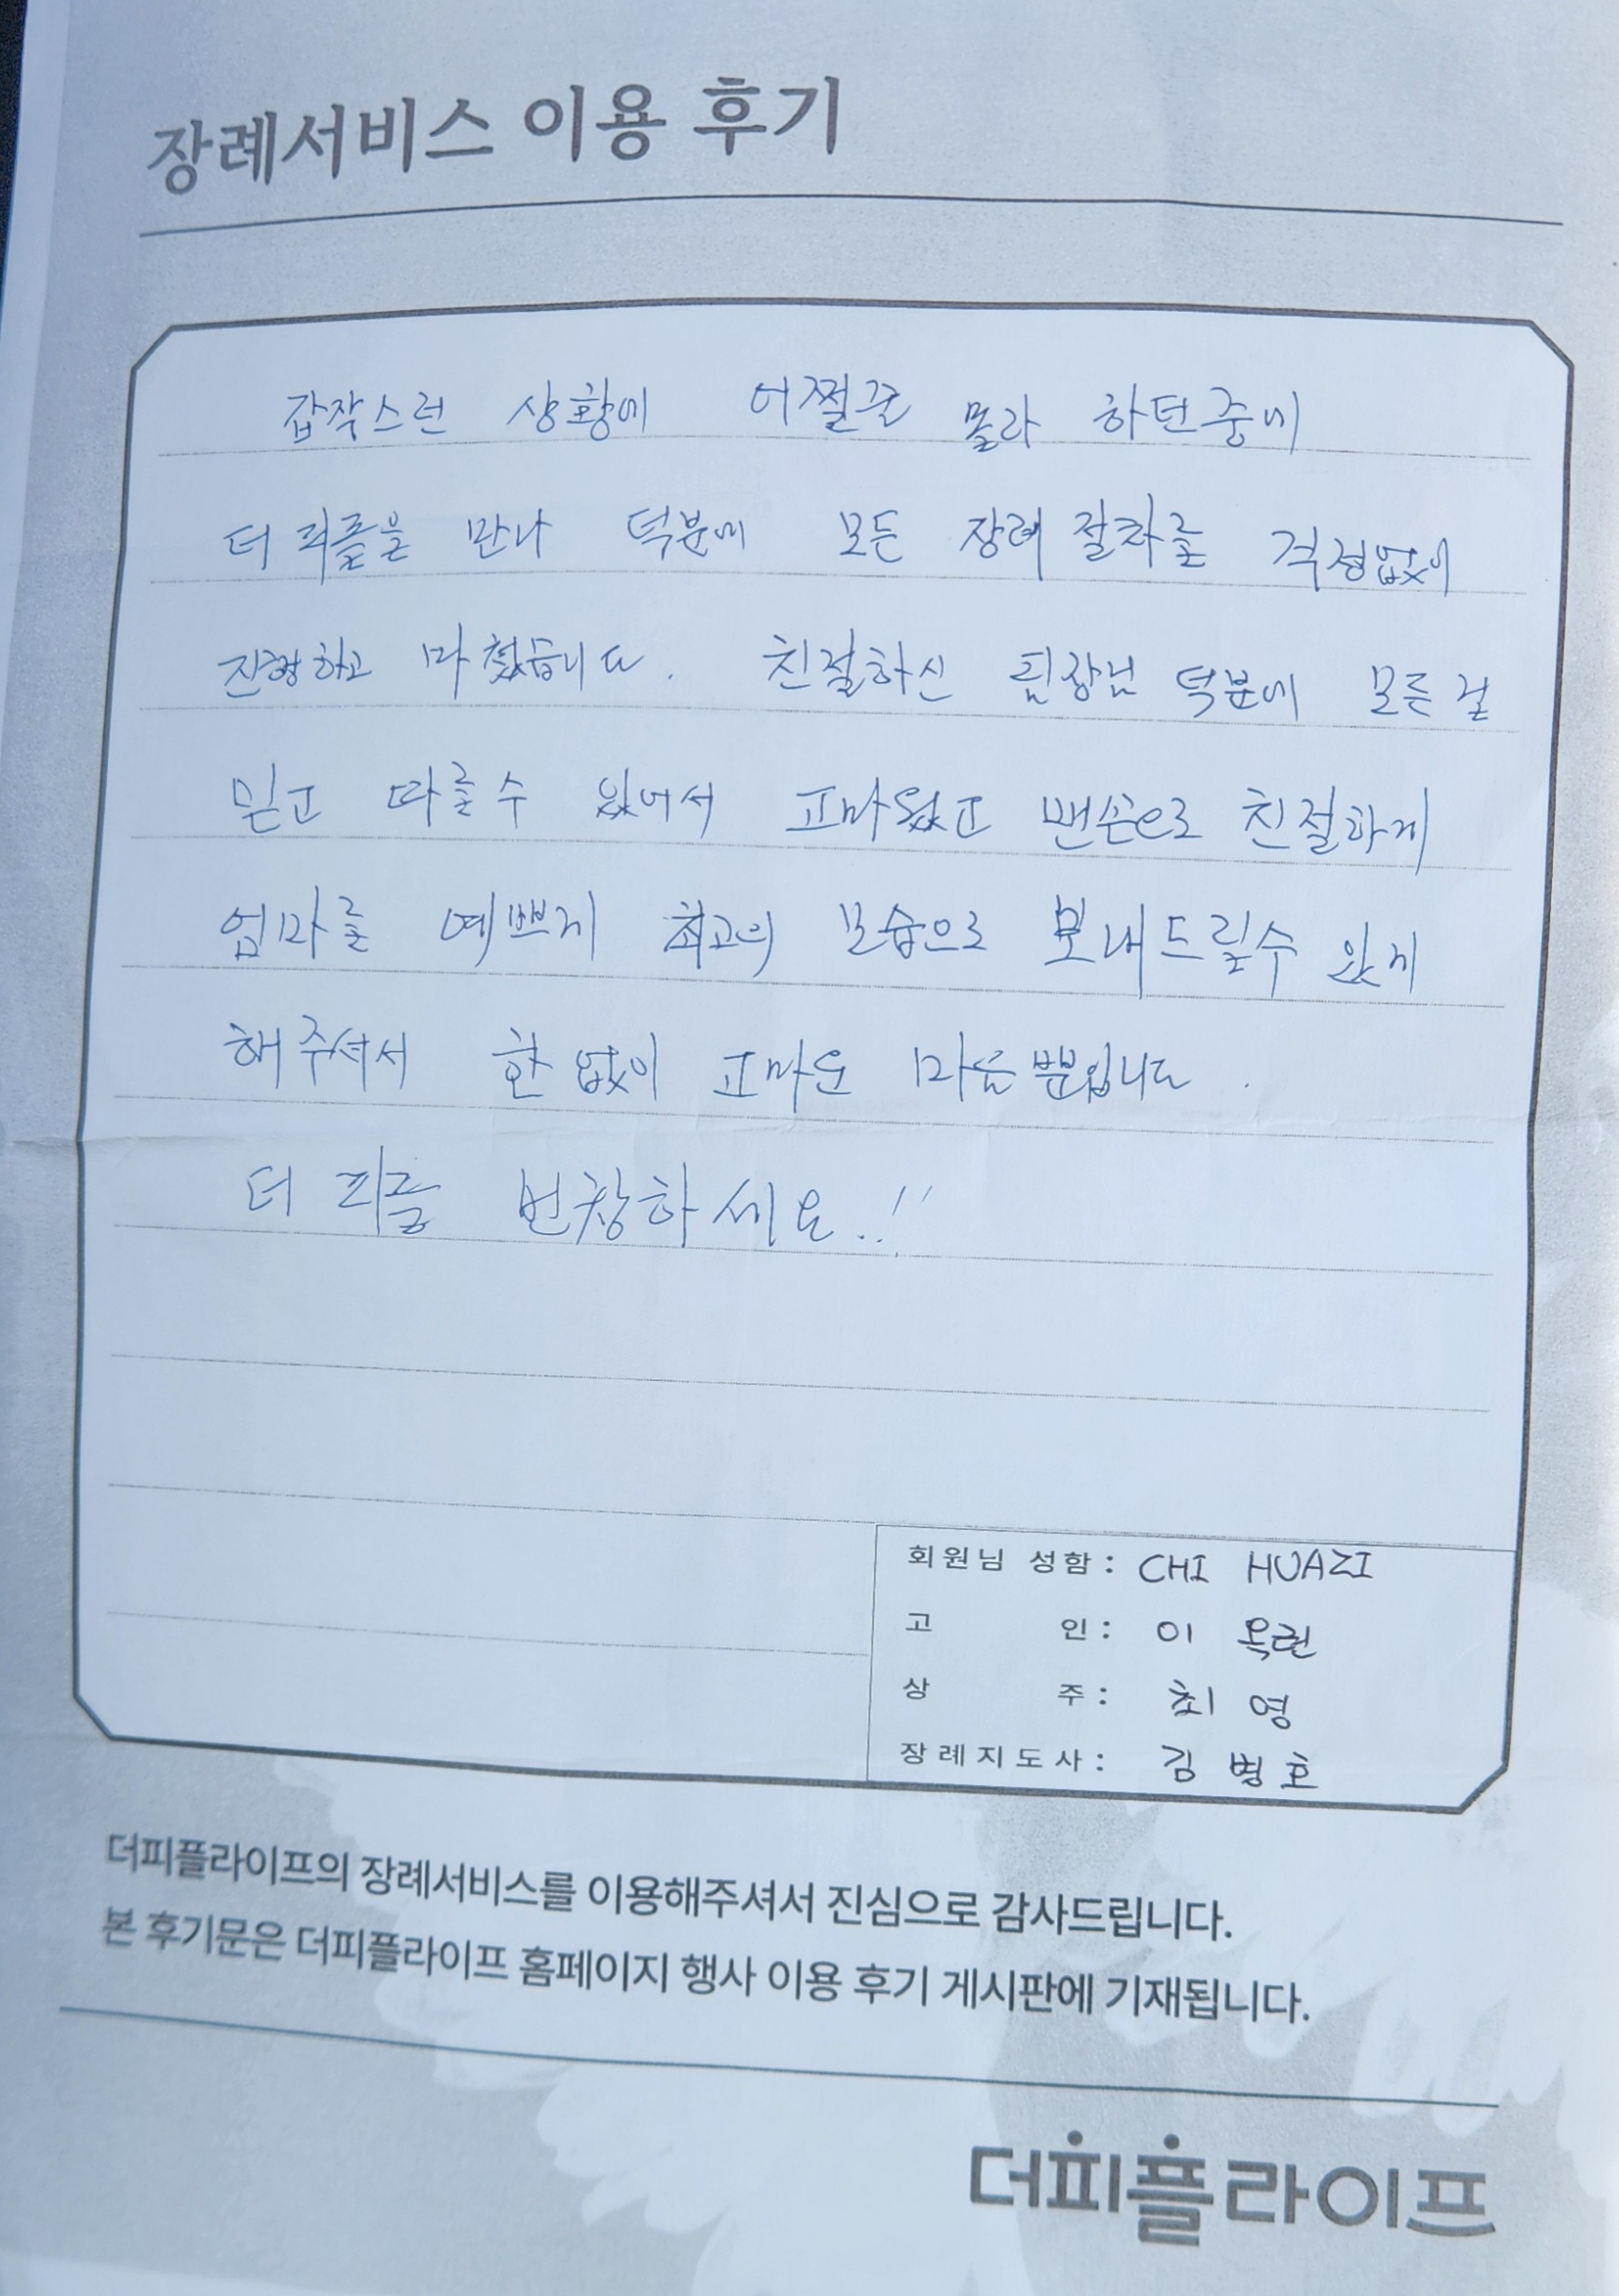 장례서비스 이용 후기
갑작스런 상황에 어쩔줄 몰라 하던중에
더 피플을 만나 덕분에 모든 장례 절차를 걱정없이
진행하고 마쳤습니다. 친절하신 팀장님 덕분에 모든 걸
믿고 따를수 있어서 고마웠고 맨손으로 친절하게
엄마를 예쁘게 최고의 모습으로 보내드릴수 있게
해주셔서 한없이 고마운 마음뿐입니다.
더 피플 번창하세요..!!
회원님 성함: CHI HUAZI
고 인: 이 옥련
상 주: 최 영
장례지도사: 김 병호
더피플라이프의 장례서비스를 이용해주셔서 진심으로 감사드립니다.
본 후기문은 더피플라이프 홈페이지 행사 이용 후기 게시판에 기재됩니다.
더피플라이프